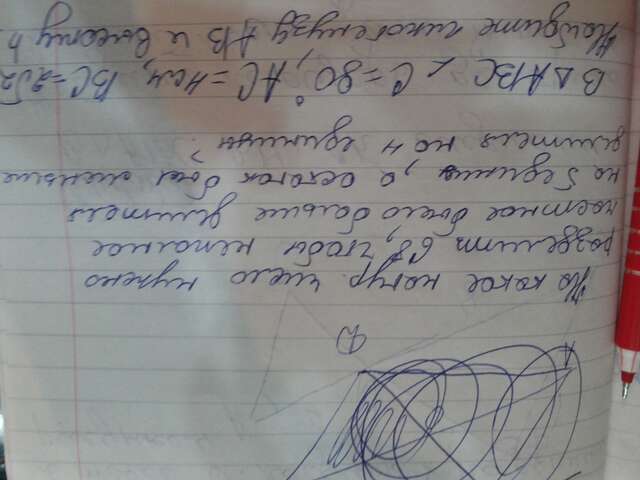 A
D
На какое натур. число нужно
разделить 68, чтобы неполное
частное было больше делителя
на 5 единиц, а остаток был меньше
делителя на 4 единицы?
В ΔABC ∠C=90°, AC=4см, BC=2√2
Найдите гипотенузу AB и высоту h